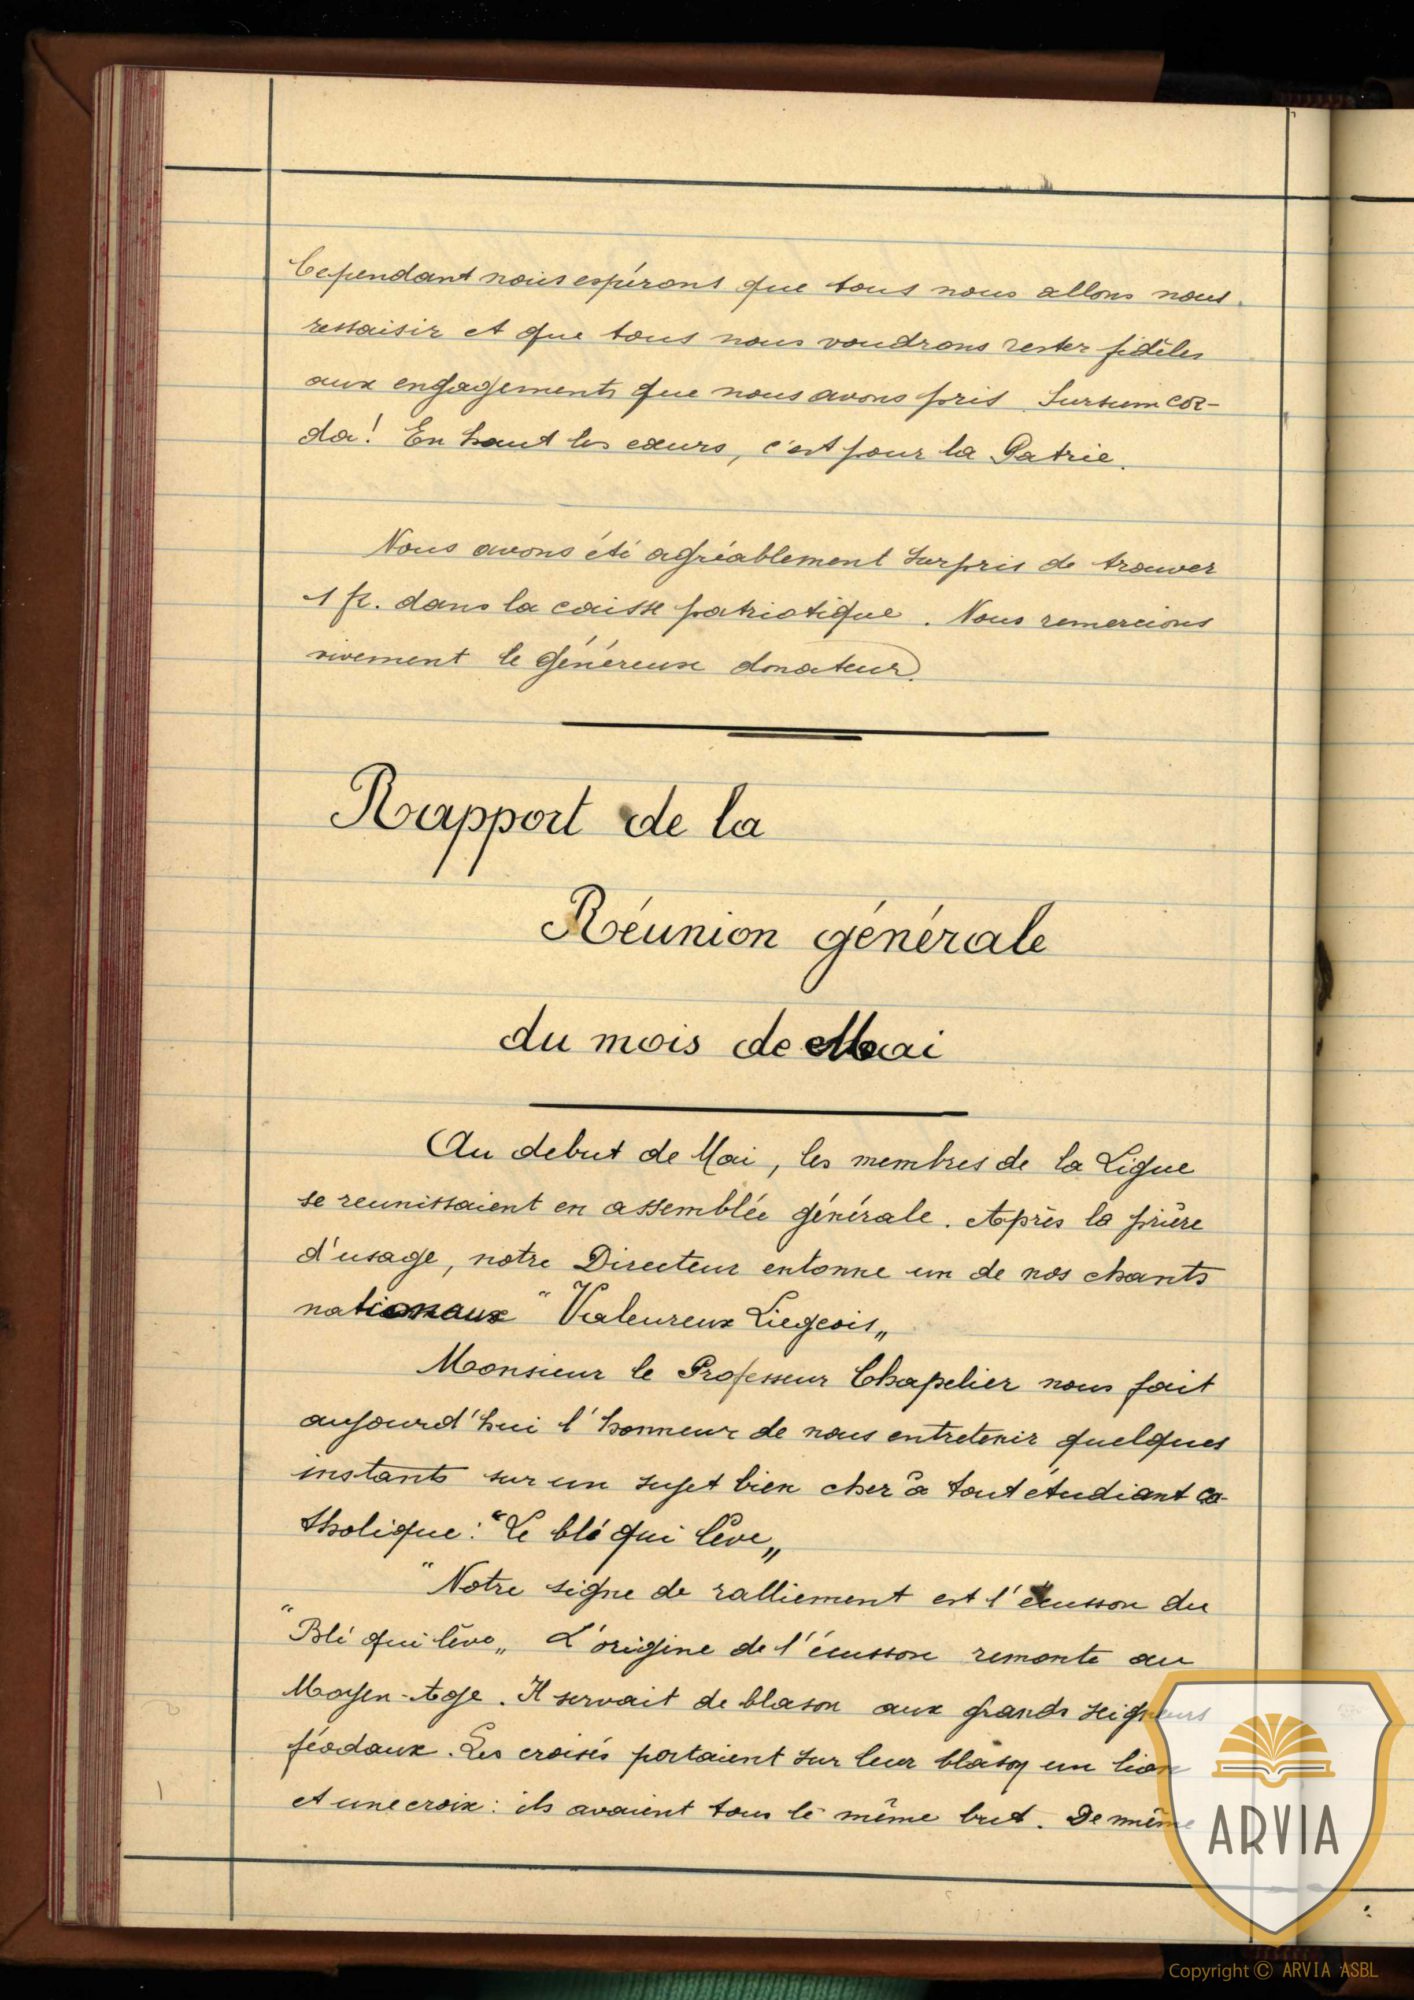 Cependant nous espérons que tous nous allons nous
ressaisir et que tous nous voudrons rester fidèles
aux engagements que nous avons pris. Sursum cor-
da! En haut les cœurs, c'est pour la Patrie.
Nous avons été agréablement surpris de trouver
1 fr. dans la caisse patriotique. Nous remercions
vivement le généreux donateur.
Rapport de la
Réunion générale
du mois de Mai
Au debut de Mai, les membres de la Ligue
se reunissaient en assemblée générale. Après la prière
d'usage, notre Directeur entonne un de nos chants
nationaux "Valeureux Liegeois„
Monsieur le Professeur Chapelier nous fait
aujourd'hui l'honneur de nous entretenir quelques
instants sur un sujet bien cher à tout étudiant ca-
tholique: "Le blé qui lève„
"Notre signe de ralliement est l'écusson du
"Blé qui lève„ L'origine de l'écusson remonte au
Moyen-Age. Il servait de blason aux grands seigneurs
féodaux. Les croisés portaient sur leur blason un lion
et une croix: ils avaient tous le même but. De même
ARVIA
Copyright © ARVIA ASBL